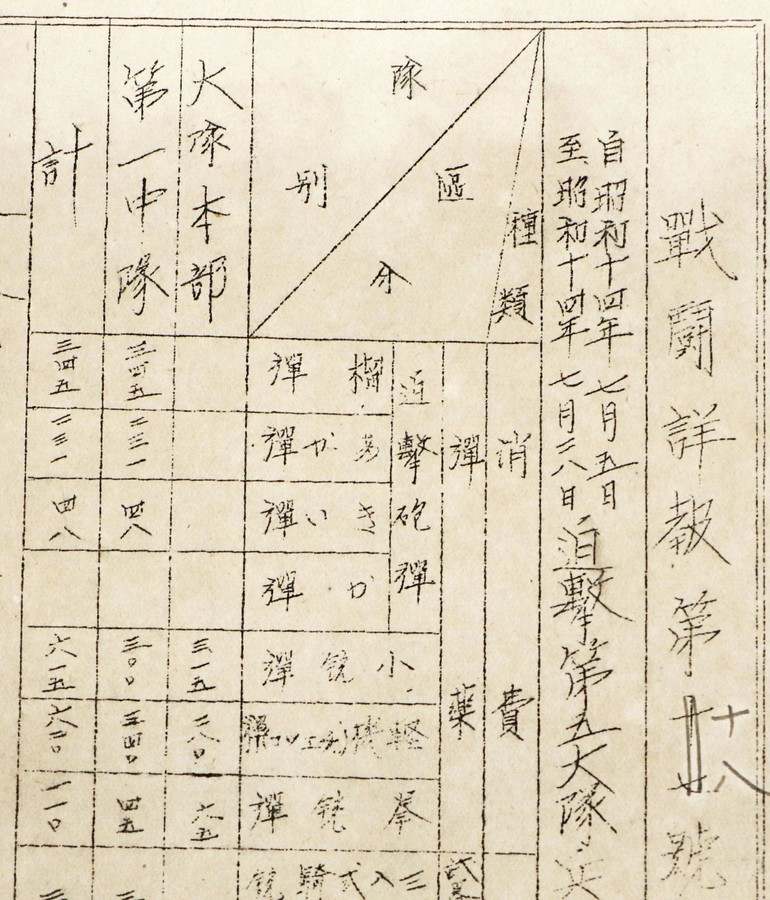 戰鬪詳報第十八號
自昭和十四年七月五日
至昭和十四年七月二八日
迫擊第五大隊兵
種類
區分
隊別
消費
彈藥
迫擊砲彈
榴彈
あか彈
きい彈
か彈
小銃彈
軽機
拳銃彈
三八式騎銃
大隊本部
三一五
二八〇
六五
第一中隊
三四五
二三一
四八
三〇〇
三四〇
四五
計
三四五
二三一
四八
六一五
六二〇
一一〇